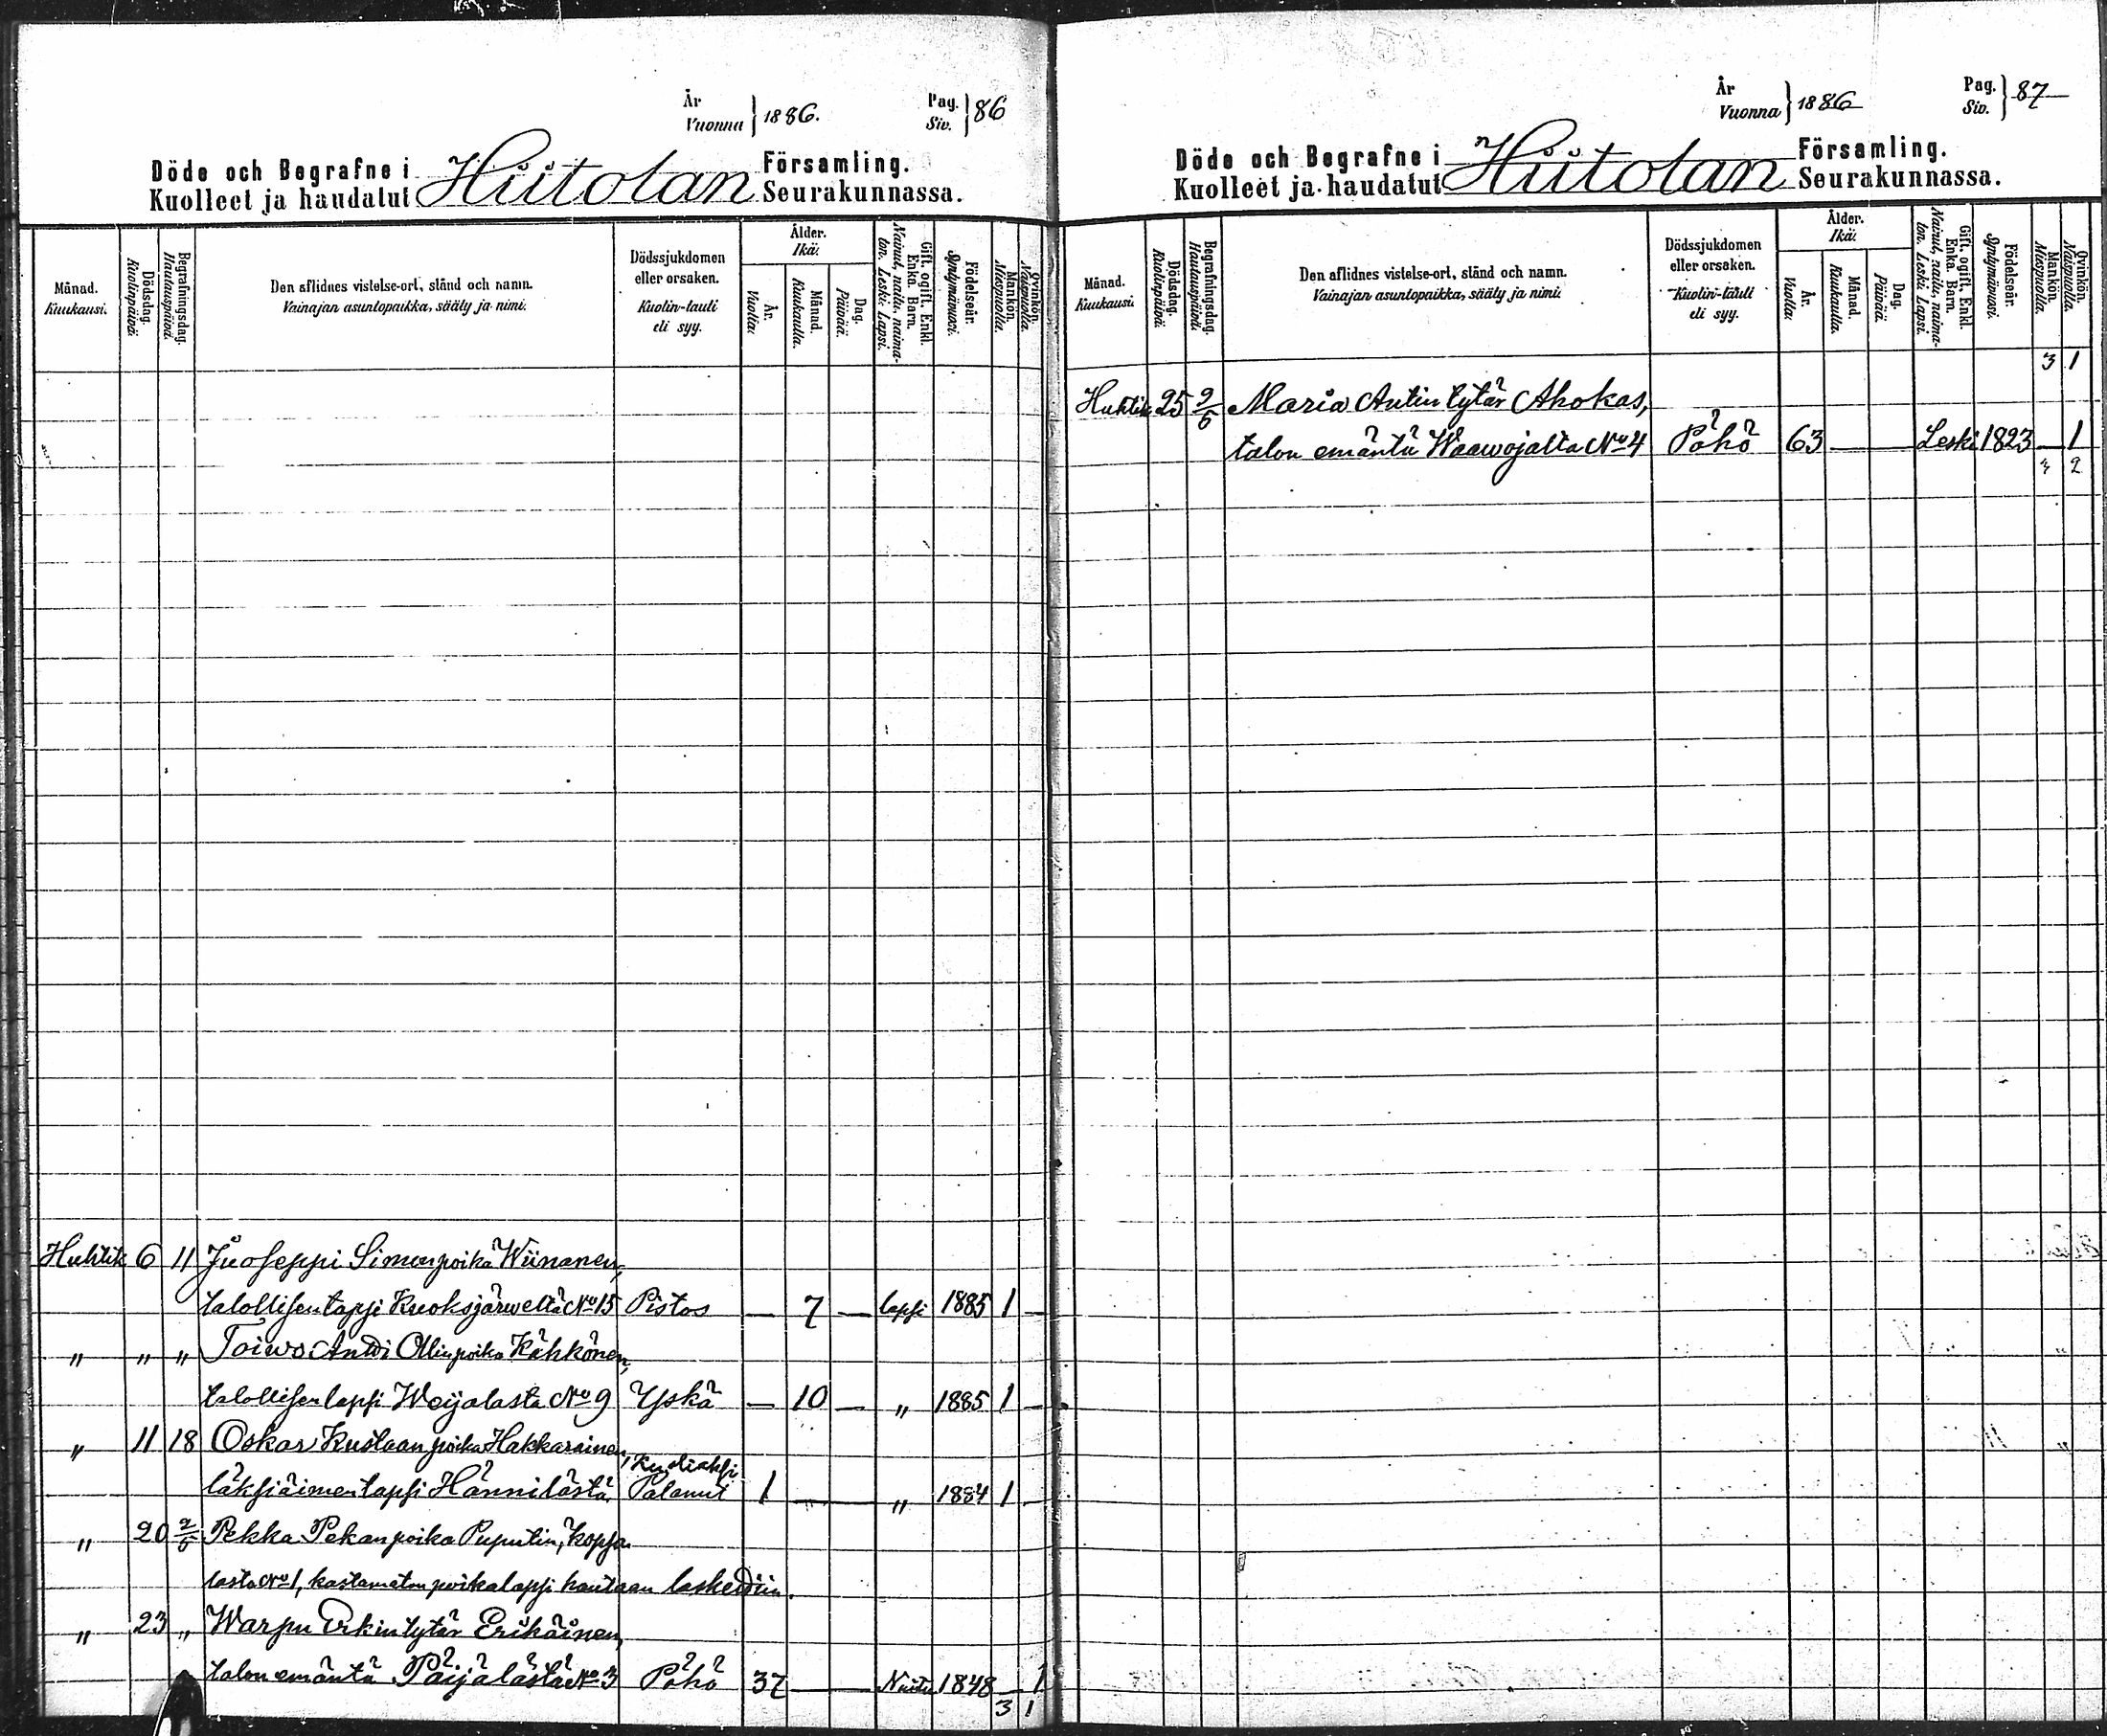 År
Vuonna } 1886.
Pag.
Siv. } 86
Döde och Begrafne i Hiitolan Församling.
Kuolleet ja haudatut Seurakunnassa.
Månad.
Kuukausi.
Dödsdag.
Kuolinpäivä.
Begrafningsdag.
Hautauspäivä.
Den aflidnes vistelse-ort, stånd och namn.
Vainajan asuntopaikka, sääty ja nimi.
Dödssjukdomen
eller orsaken.
Kuolin-tauti
eli syy.
Ålder.
Ikä.
År.
Vuotta.
Månad.
Kuukautta.
Dag.
Päivää.
Gift, ogift, Enkl.
Enka. Barn.
Nainut, naitu, naima-
ton. Leski. Lapsi.
Födelseår.
Syntymävuosi.
Mankön.
Miespuolia.
Qvinkön.
Naispuolia.
Huhtik 6 11 Juoseppi Simonpoika Wiinanen,
talollisen lapsi Kuoksjärweltä No 15 Pistos — 7 — lapsi 1885 1 —
" " " Toiwo Antti Ollinpoika Kähkönen,
talollisen lapsi Weijalasta No 9 Yskä — 10 — " 1885 1 —
" 11 18 Oskar Kustaanpoika Hakkarainen,
Kuoliaksi
läksiäimen lapsi Hännilästä Palanut 1 — " 1884 1 —
" 20 2/5 Pekka Pekanpoika Puputin, Kopsa
lasta No 1, kastamaton poikalapsi hautaan laskettiin.
" 23 " Warpu Erkintytär Erikäinen,
talon emäntä Päijälästä No 3 Pöhö 37 — Naitu 1848 — 1
3 1
År
Vuonna } 1886
Pag.
Siv. } 87
Döde och Begrafne i Hiitolan Församling.
Kuolleet ja haudatut Seurakunnassa.
Månad.
Kuukausi.
Dödsdag.
Kuolinpäivä.
Begrafningsdag.
Hautauspäivä.
Den aflidnes vistelse-ort, stånd och namn.
Vainajan asuntopaikka, sääty ja nimi.
Dödssjukdomen
eller orsaken.
Kuolin-tauti
eli syy.
Ålder.
Ikä.
År.
Vuotta.
Månad.
Kuukautta.
Dag.
Päivää.
Gift, ogift, Enkl.
Enka. Barn.
Nainut, naitu, naima-
ton. Leski. Lapsi.
Födelseår.
Syntymävuosi.
Mankön.
Miespuolia.
Qvinkön.
Naispuolia.
3 1
Huhtik 25 2/5 Maria Antintytär Ahokas,
talon emäntä Waawojalta No 4 Pöhö 63 — Leski 1823 — 1
3 2